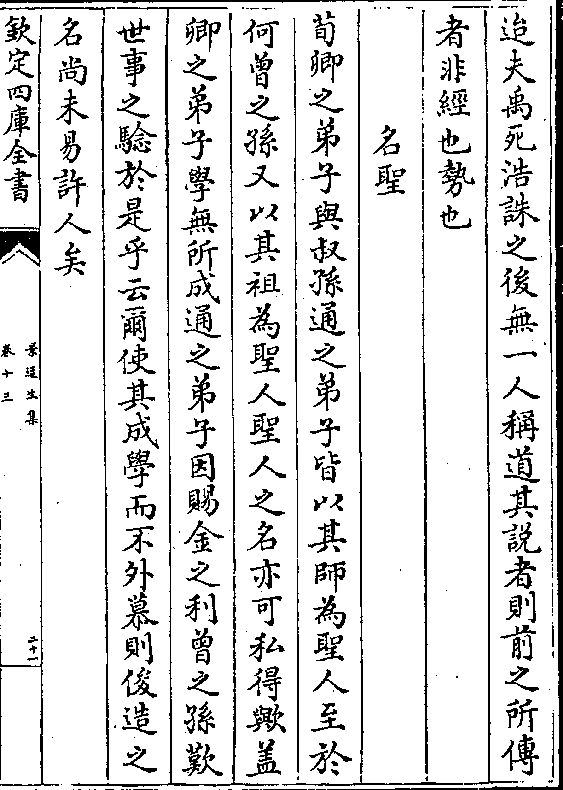 迨夫禹死浩誅之後無一人稱道其說者則前之所傳
者非經也勢也
名聖
荀卿之弟子與叔孫通之弟子皆以其師為聖人至於
何曽之孫又以其祖為聖人聖人之名亦可私得歟盖
卿之弟子學無所成通之弟子因賜金之利曽之孫歎
世事之驗於是乎云爾使其成學而不外慕則俊造之
名尚未易許人矣
欽定四庫全書
景迂生集
卷十三
二十一